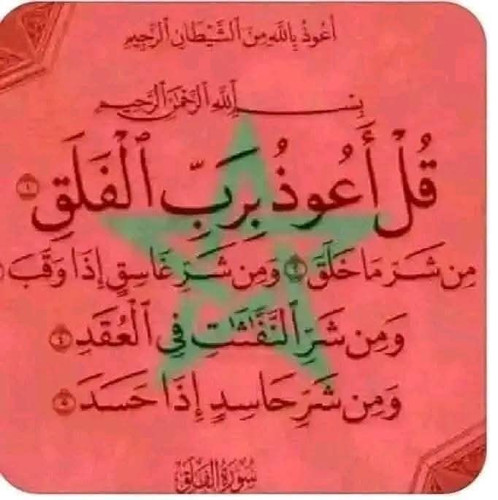 أعوذ بالله من الشيطان الرجيم
بسم الله الرحمن الرحيم
قُلْ أَعُوذُ بِرَبِّ ٱلْفَلَقِ ١
مِن شَرِّ مَا خَلَقَ ٢ وَمِن شَرِّ غَاسِقٍ إِذَا وَقَبَ
وَمِن شَرِّ ٱلنَّفَّٰثَٰتِ فِي ٱلْعُقَدِ ٤
وَمِن شَرِّ حَاسِدٍ إِذَا حَسَدَ ٥
سورة الفلق